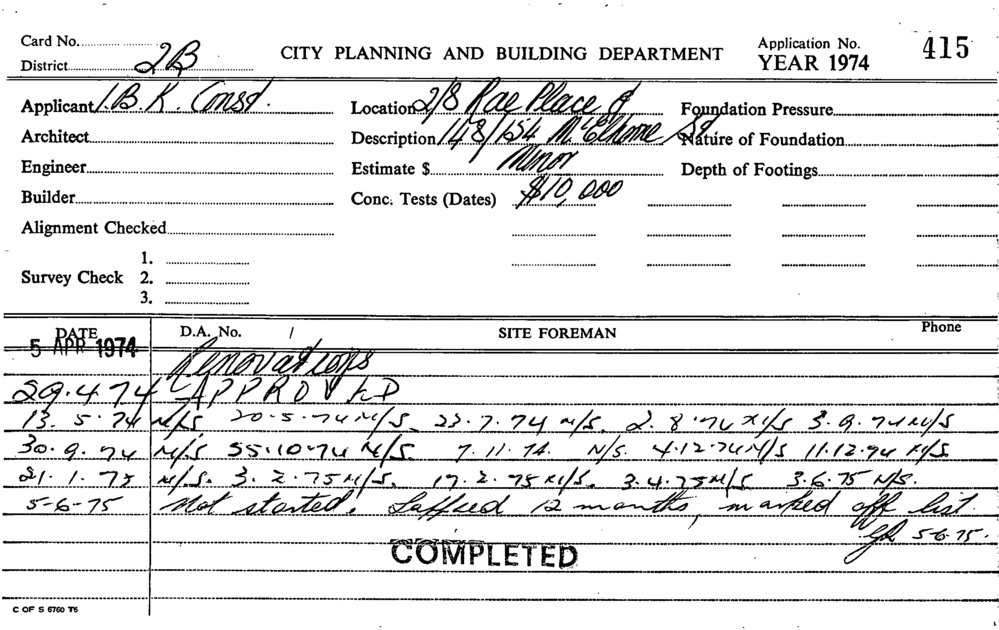 Card No. Application No. 415
District 2B CITY PLANNING AND BUILDING DEPARTMENT YEAR 1974
Applicant I.B.K. Const. Location 2/8 Rae Place & Foundation Pressure
Architect Description 148/154 McElhone St Nature of Foundation
Engineer Estimate $ Minor Depth of Footings
Builder Conc. Tests (Dates) $10,000
Alignment Checked
1.
Survey Check 2.
3.
DATE D.A. No. / SITE FOREMAN Phone
5 APR 1974 Renovations
29.4.74 APPROVED
13.5.74 N/S 20.5.74 N/S. 23.7.74 N/S. 2.8.74 N/S 3.9.74 N/S
30.9.74 N/S .10.74 N/S. 7.11.74. N/S. 4.12.74 N/S 11.12.74 N/S
21.1.75 N/S. 3.2.75 N/S. 17.2.75 N/S. 3.4.75 N/S. 3.6.75 N/S.
5-6-75 Not started. Laffsed 12 months, marked off list.
5.6.75.
COMPLETED
C OF S 6760 T6